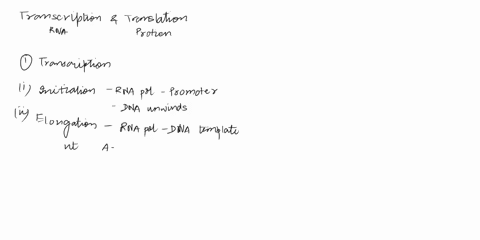 Transcription & Translation
RNA Protien
① Transcription
(i) Initiation - RNA pol - Promoter
- DNA unwinds
(ii) Elongation - RNA pol - DNA template
nt A-